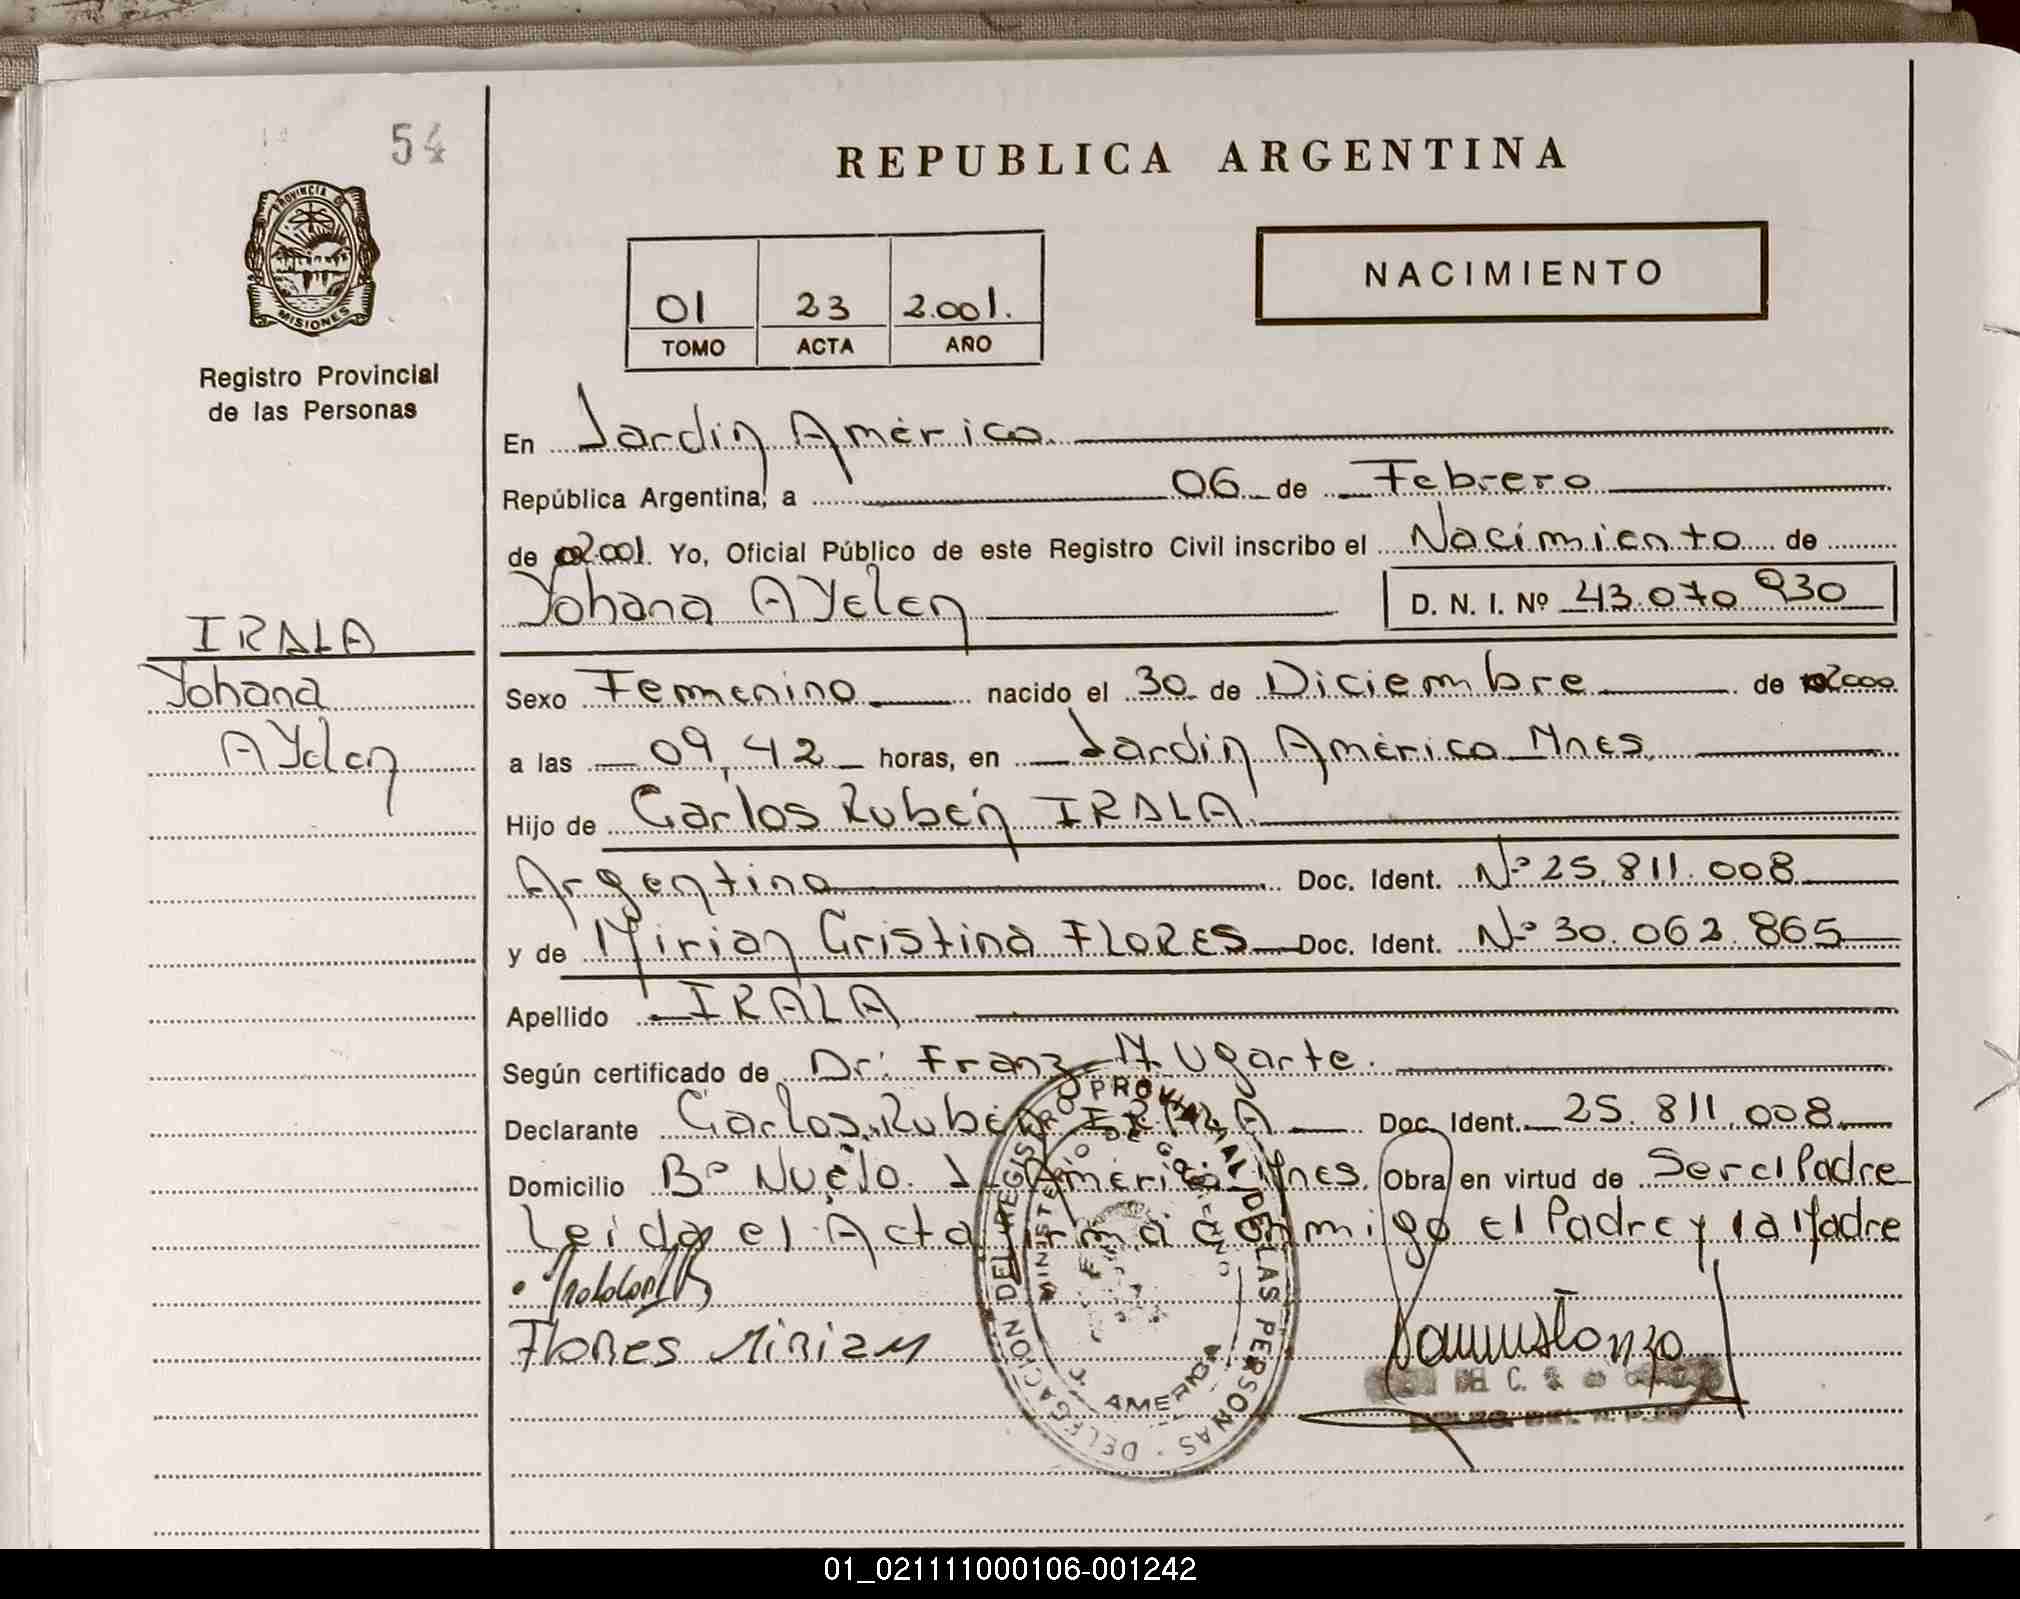 54
REPUBLICA ARGENTINA
PROVINCIA DE
MISIONES
Registro Provincial
de las Personas
01 23 2.001.
TOMO ACTA AÑO
NACIMIENTO
En Jardín América
República Argentina, a 06 de Febrero
de 2.001. Yo, Oficial Público de este Registro Civil inscribo el Nacimiento de
Yohana AYelen D. N. I. Nº 43.070.930
IRALA
Yohana
AYelen
Sexo Femenino nacido el 30 de Diciembre de 2000
a las 09,42 horas, en Jardín América Mnes.
Hijo de Carlos Rubén IRALA
Argentina Doc. Ident. Nº 25.811.008
y de Mirian Cristina FLORES Doc. Ident. Nº 30.062.865
Apellido IRALA
Según certificado de Dr: Franz M Ugarte.
Declarante Carlos Rubén IRALA Doc. Ident. 25.811.008
Domicilio Bº Nuevo. J. América Mnes. Obra en virtud de Ser el Padre
Leida el Acta firma conmigo el Padre y la Madre
Flores Miriam
DELEGACION DEL REGISTRO PROVINCIAL DE LAS PERSONAS
MINISTERIO DE GOBIERNO
J. AMERICA
01_021111000106-001242